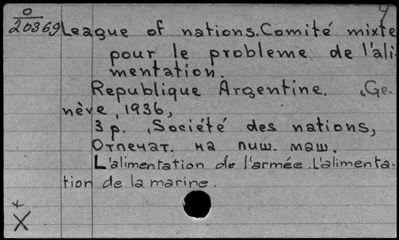 4
0
20369 League of nations. Comité mixte
pour le probleme de l'ali-
mentation.
Republique Argentine. Ge-
nève, 1936,
3 p. , Société des nations,
Отпечат. на пиш. маш.
L'alimentation de l'armée. L'alimenta-
tion de la marine.
+
X